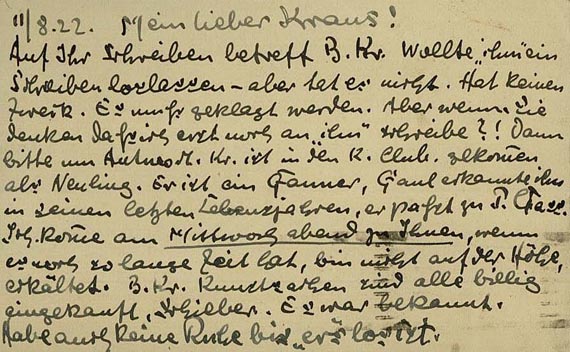 11/8.22. Mein lieber Kraus!
Auf Ihr Schreiben betreff B. Kr. Wollte "ihm" ein
Schreiben loslassen – aber tat es nicht. Hat keinen
Zweck. Es muß geklagt werden. Aber wenn Sie
denken daß ich erst noch an "ihn" schreibe?! Dann
bitte um Antwort. Kr. ist in den K. Club. gekomen
als Neuling. Er ist ein Gauner, Gaul erkannte ihn
in seinen letzten Lebensjahren, er paßt zu P. Cass.
Ich kome am Mittwoch abend zu Ihnen, wenn
es noch so lange Zeit hat, bin nicht auf der Höhe,
erkältet. B. Kr. Kunstsachen sind alle billig
eingekauft, Schieber. Es war bekannt.
Habe auch keine Ruhe bis "er" los ist.